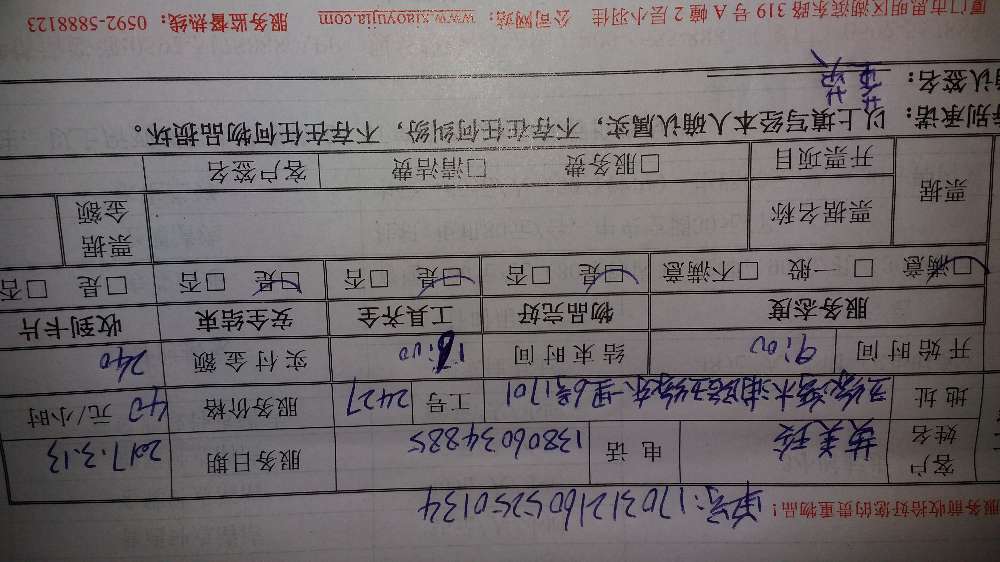 服务前收拾好您的贵重物品!
单号:1703121605250134
客户姓名 黄美珍 电话 13806034885 服务日期 2017.3.13
地址 6号1701 工号 2427 服务价格 40元/小时
开始时间 9:00 结束时间 16:00 实付金额 240
服务态度 物品完好 工具齐全 安全结束 收到卡片
□满意 □一般 □不满意 □是 □否 □是 □否 □是 □否 □是 □否
票据 票据名称 票据金额
开票项目 □服务费 □清洁费 客户签名
别承诺:以上填写经本人确认属实,不存在任何纠纷,不存在任何物品损坏。
认签名:
厦门市思明区湖滨东路 319 号 A 幢 2 层小羽佳 公司网站:www.xiaoyujia.com 服务监督热线:0592-5888123